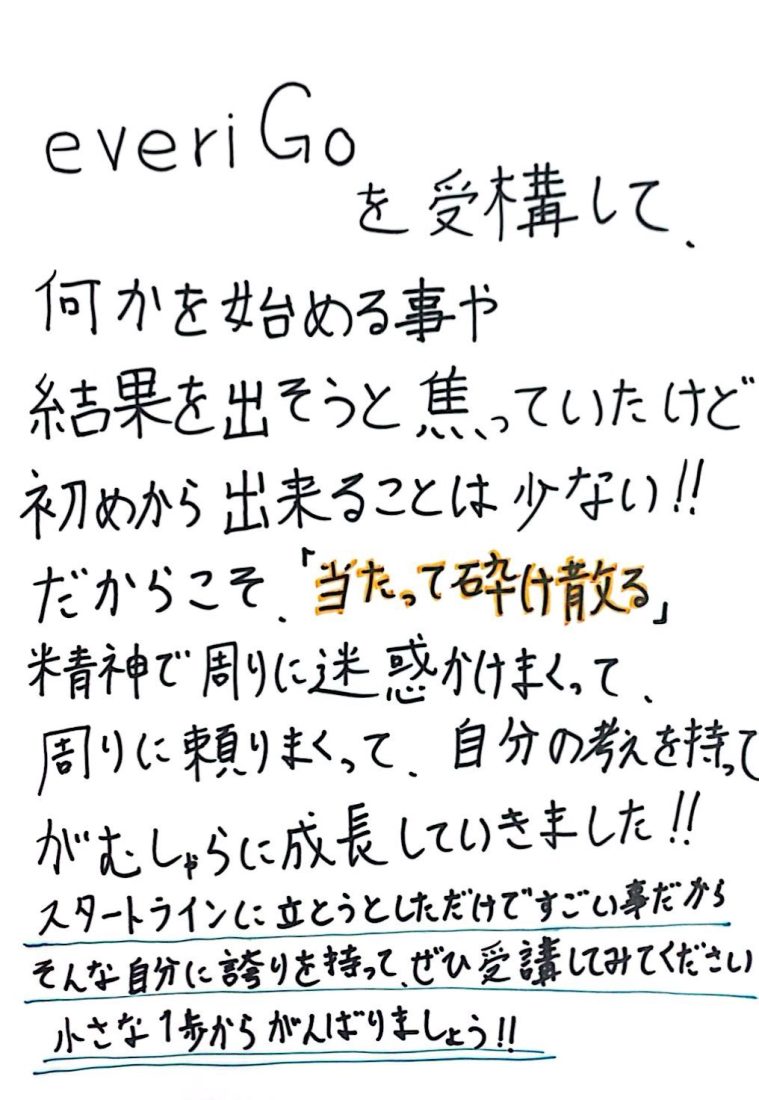 everiGo
を受構して、
何かを始める事や
結果を出そうと焦っていたけど
初めから出来ることは少ない!!
だからこそ、「当たって砕け散る」
精神で周りに迷惑かけまくって、
周りに頼りまくって、自分の考えを持って
がむしゃらに成長していきました!!
スタートラインに立とうとしただけですごい事だから
そんな自分に誇りを持って、ぜひ受講してみてください
小さな1歩からがんばりましょう!!